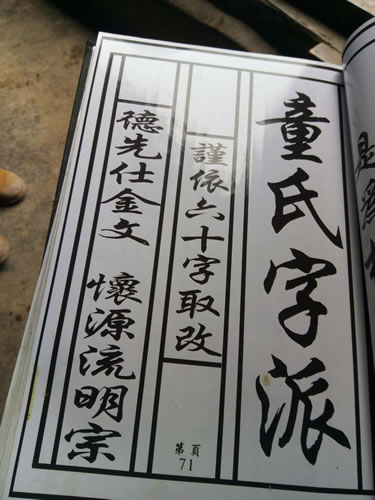 童氏字派
謹依六十字取改
德先仕金文 懷源流明宗
第頁
71